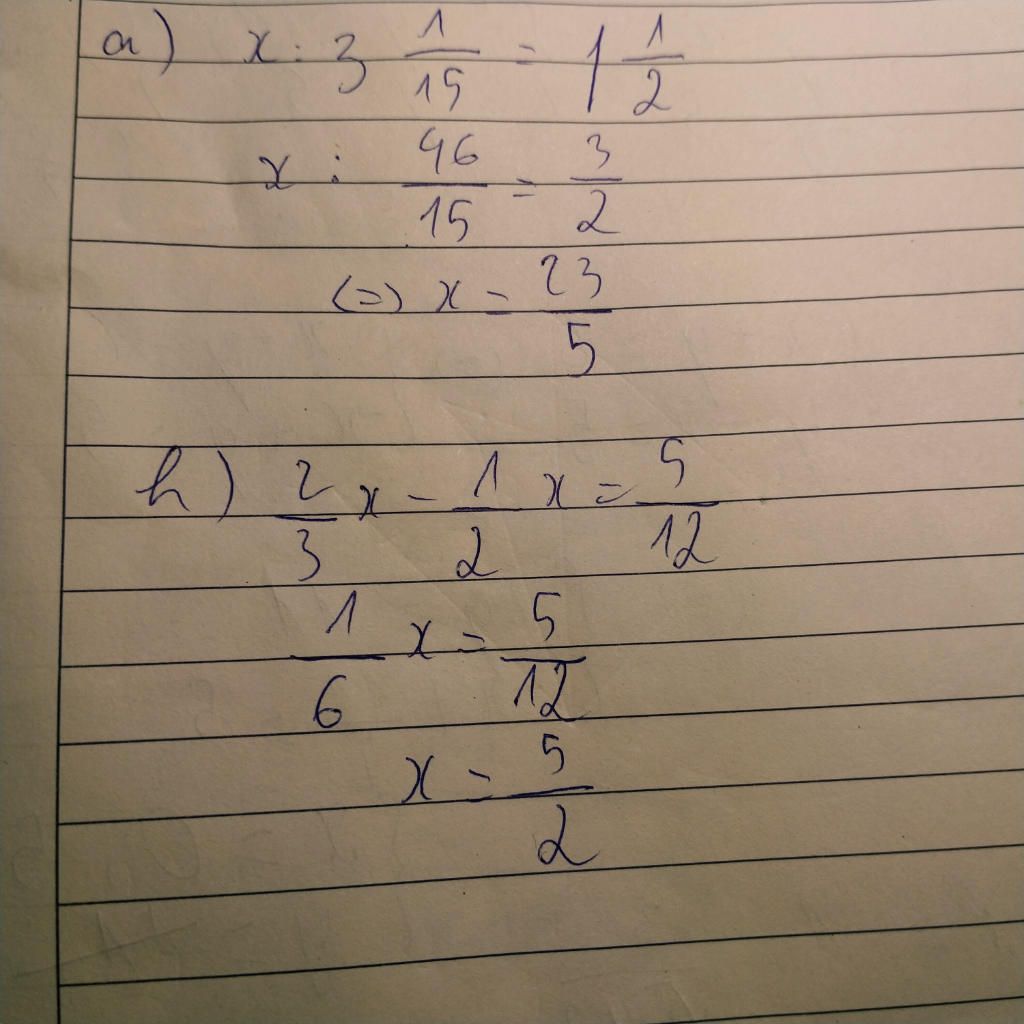 a) x : 3 1/15 = 1 1/2
x : 46/15 = 3/2
(=) x = 23/5
h) 2/3 x - 1/2 x = 5/12
1/6 x = 5/12
x = 5/2